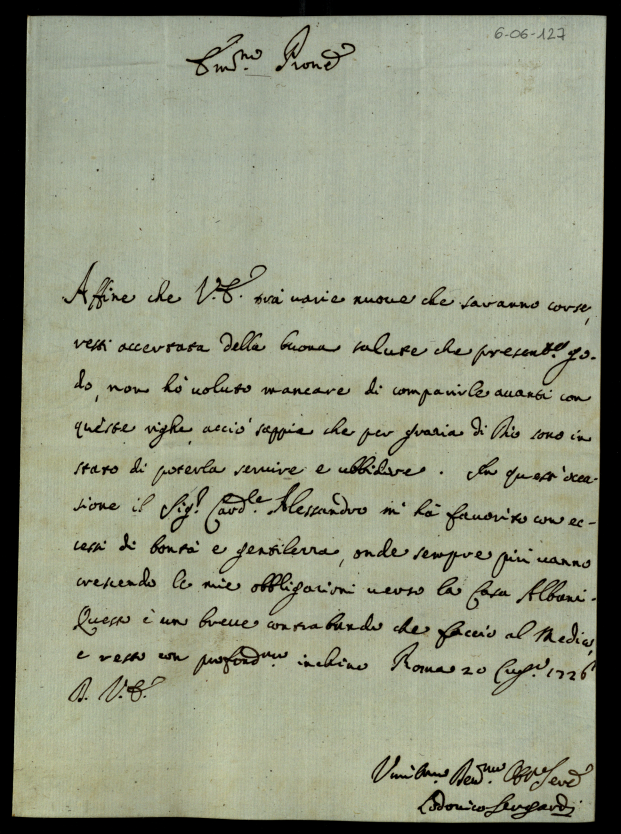 6-06-127
Em.mo Prone
Affine che V.E. trà varie nuove che saranno corse,
resti accertata della buona salute che presen.te go-
do, non hò voluto mancare di comparirle avanti con
queste righe, acciò sappia che per grazia di Dio sono in
stato di poterla servire e ubbidire. In quest'occa-
sione il Sig.r Card.le Alessandro mi hà favorito con ec-
cessi di bontà e gentilezza, onde sempre più vanno
crescendo le mie obbligazioni verso la Casa Albani.
Questo è un breve contrabando che faccio al Medico,
e resto con profond.mo inchino Roma 20 1726
D. V.E.
Umiliss.mo Dev.mo Obb.mo Serv.e
Lodovico Sergardi